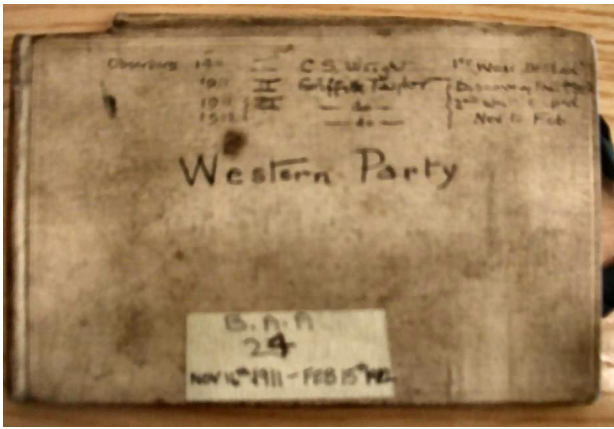 Observers 1911 I C.S. Wright 1st West
1911 II Griffith Taylor Discovery Hut
1911 III — do — 2nd West
1912 — do — Nov to Feb
Western Party
B.A.A
24
NOV 16th 1911 – FEB 15th 1912